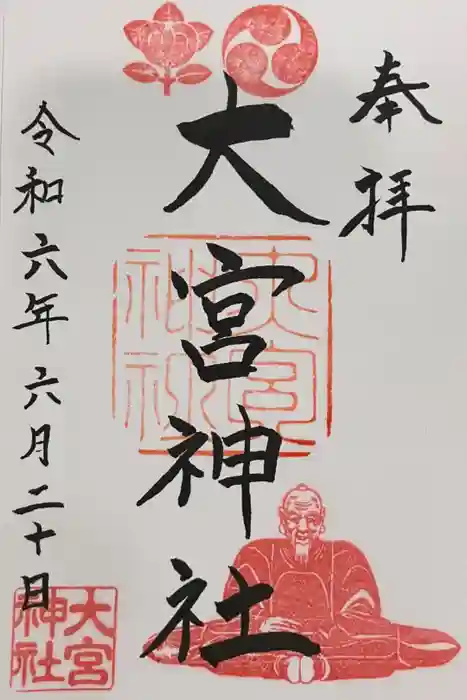 奉拝
大宮神社
令和六年六月二十日
大宮神社
大宮神社